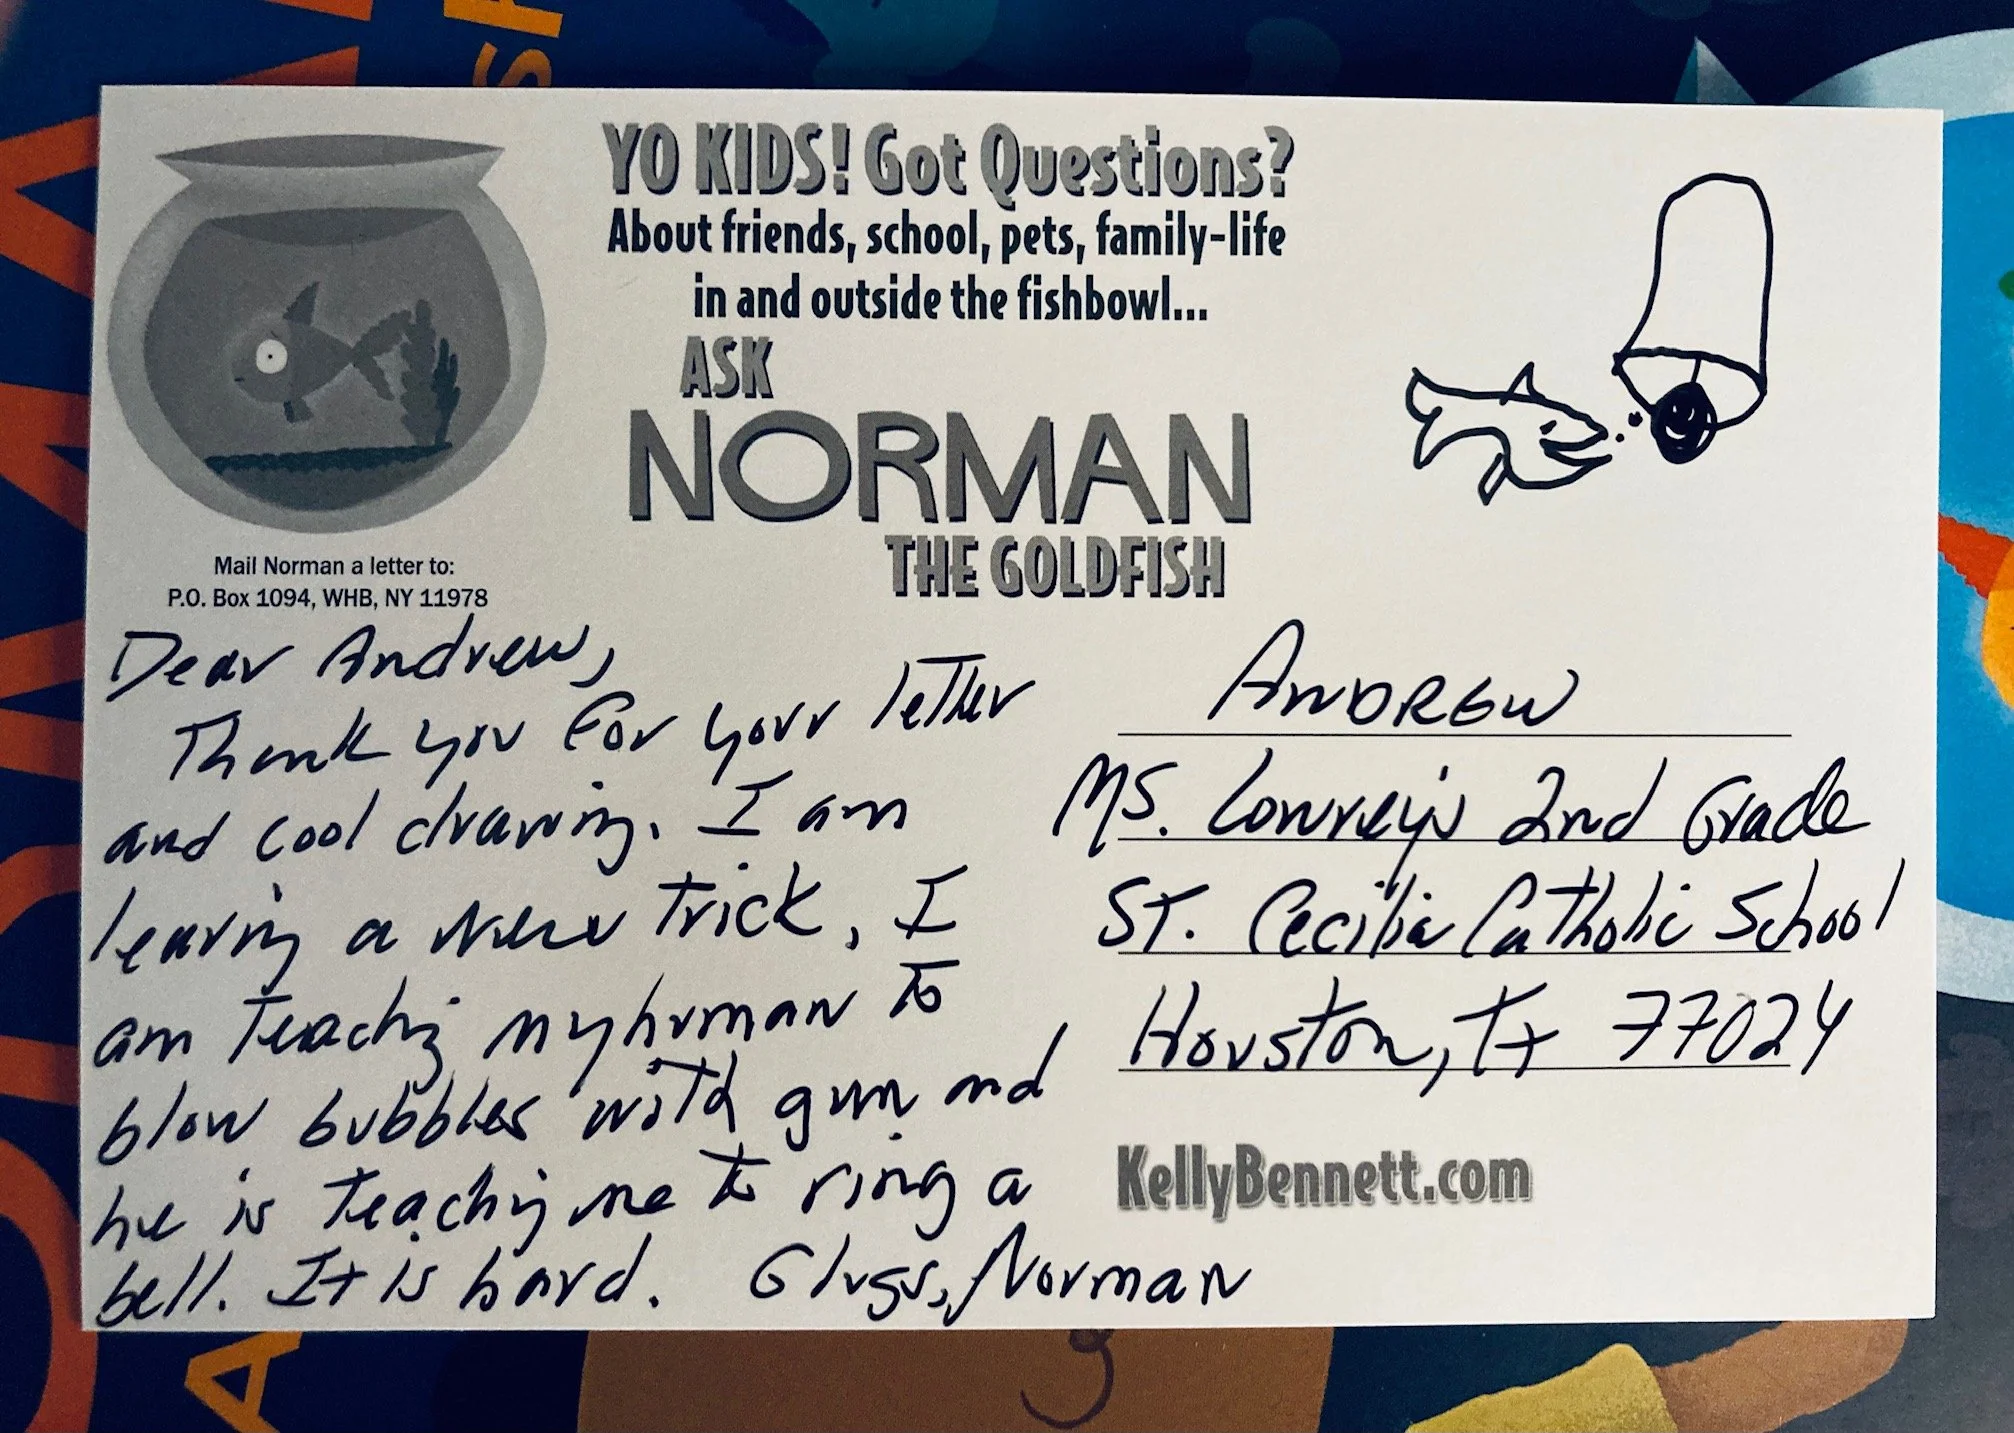 YO KIDS! Got Questions?
About friends, school, pets, family-life
in and outside the fishbowl...
ASK
NORMAN
THE GOLDFISH
Mail Norman a letter to:
P.O. Box 1094, WHB, NY 11978
Dear Andrew,
Thank you for your letter
and cool drawing. I am
learing a new trick, I
am teachig my human to
blow bubbles with gum and
he is teachig me to ring a
bell. It is hard. Glugs, Norman
ANDREW
MS. Lowrey's 2nd Grade
ST. Cecilia Catholic School
Houston, Tx 77024
KellyBennett.com